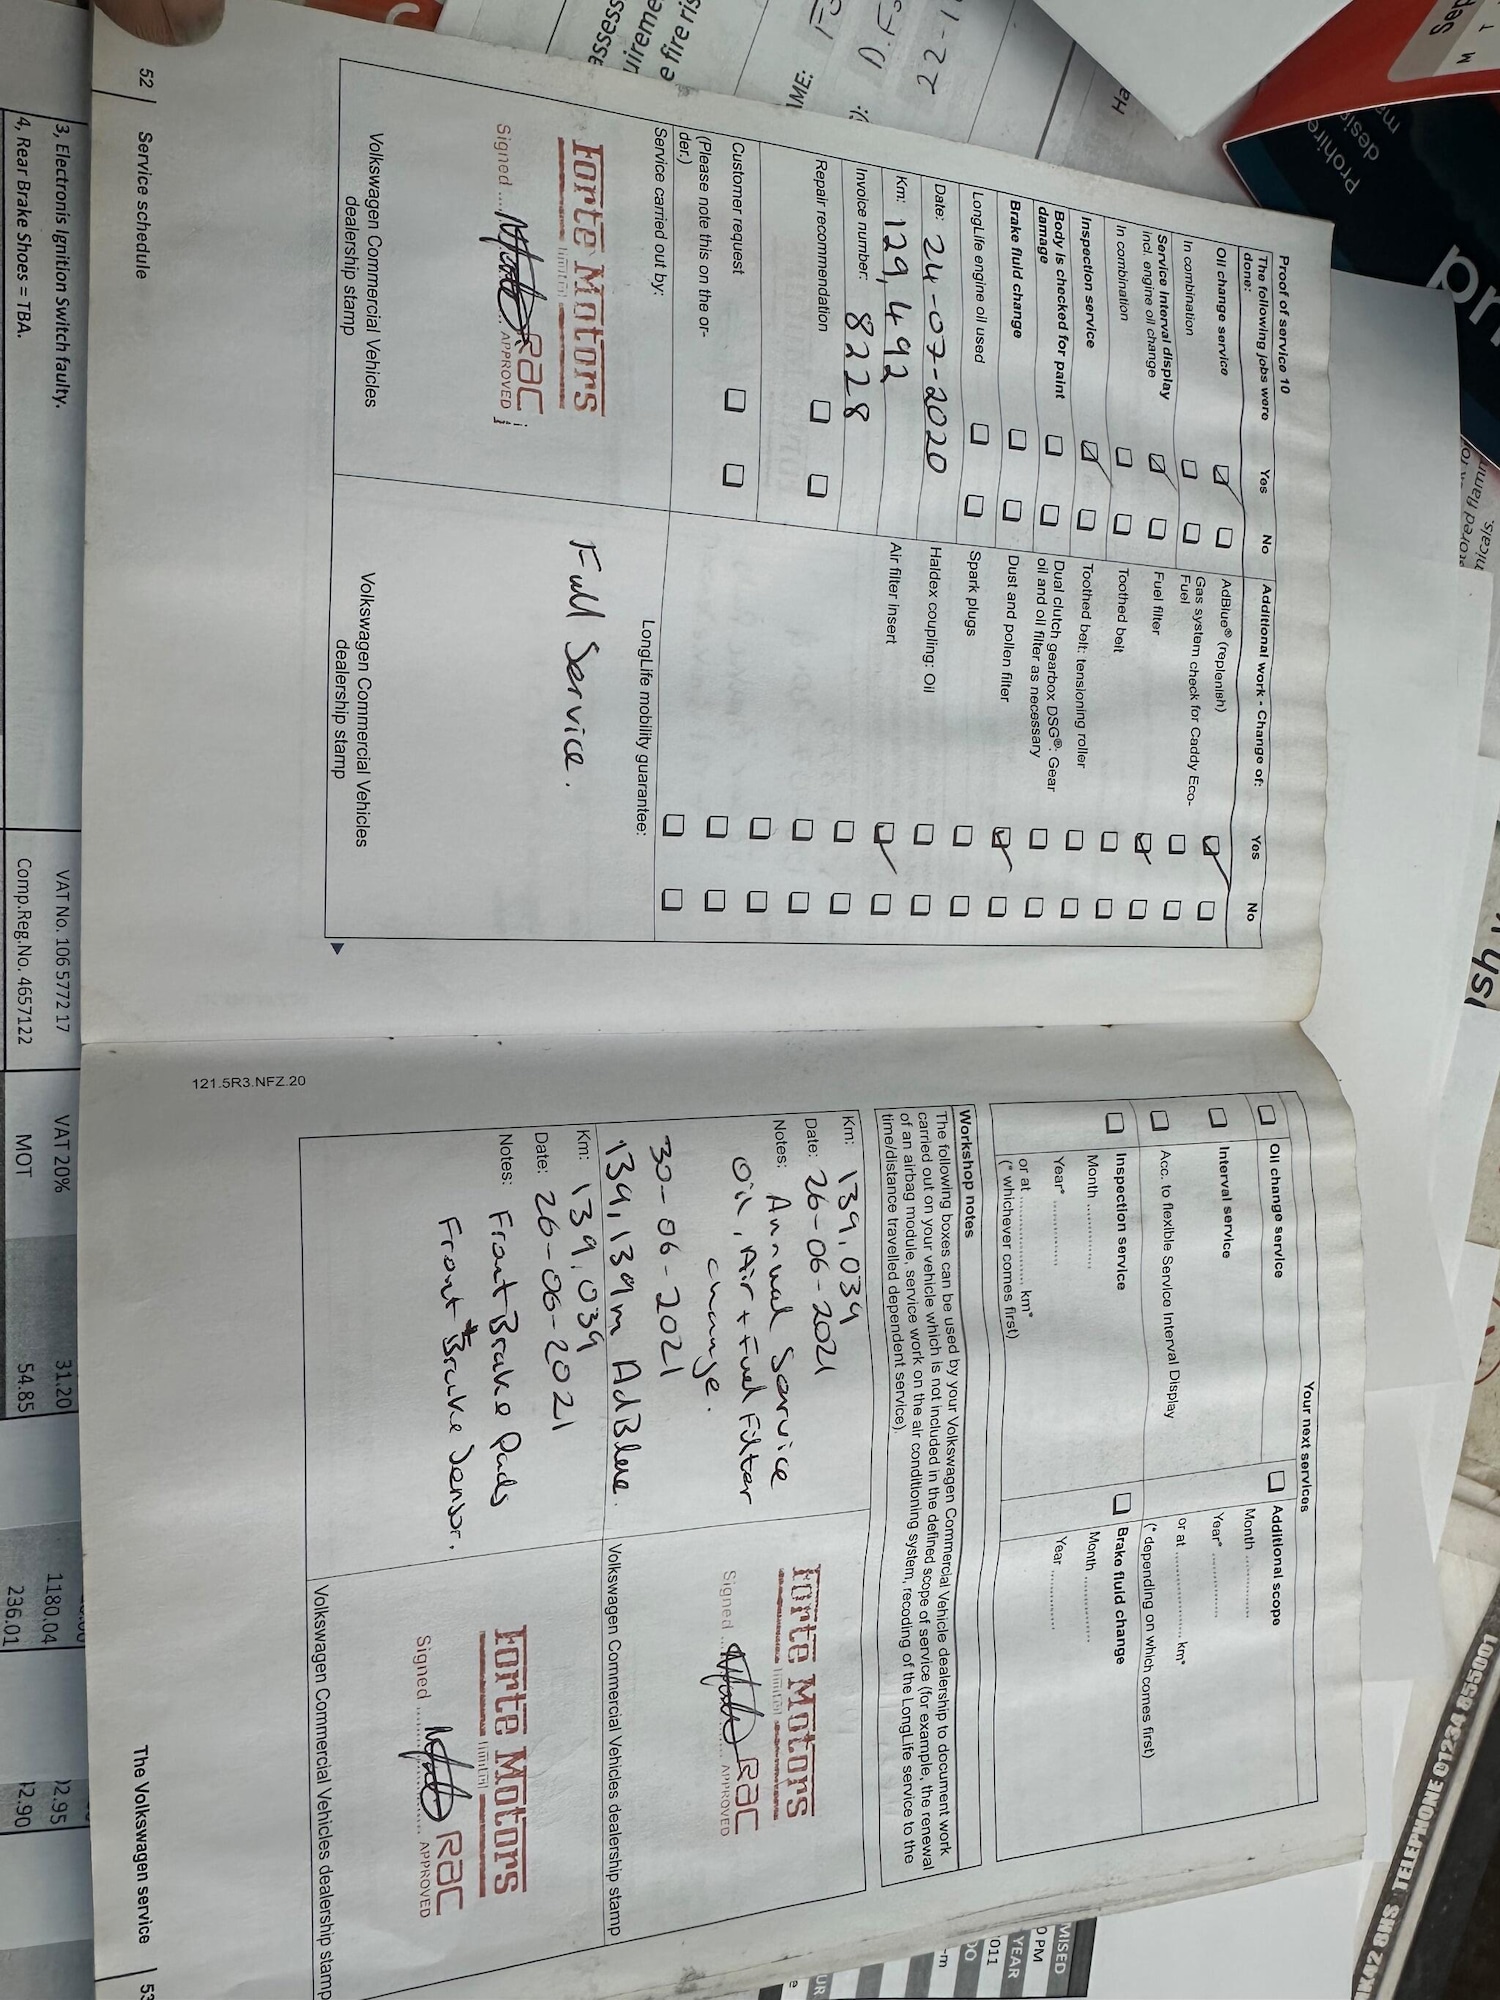 Proof of service 10
The following jobs were done:
Yes
No
Additional work - Change of:
Yes
No
Oil change service
In combination
Service Interval display
incl. engine oil change
In combination
Inspection service
Body is checked for paint
damage
Brake fluid change
LongLife engine oil used
Date: 24-07-2020
Km: 129,492
Invoice number: 8228
Repair recommendation
Customer request
(Please note this on the or-
der.)
AdBlue® (replenish)
Gas system check for Caddy Eco-
Fuel
Fuel filter
Toothed belt
Toothed belt: tensioning roller
Dual clutch gearbox DSG®: Gear
oil and oil filter as necessary
Dust and pollen filter
Spark plugs
Haldex coupling: Oil
Air filter insert
Service carried out by:
LongLife mobility guarantee:
Forte Motors
limited
Signed
RAC
APPROVED
Full Service.
Volkswagen Commercial Vehicles
dealership stamp
Volkswagen Commercial Vehicles
dealership stamp
52
Service schedule
Your next services
Oil change service
Interval service
Acc. to flexible Service Interval Display
Inspection service
Month ...............
Year* ...............
or at ............... km*
(* whichever comes first)
Additional scope
Month ...............
Year* ...............
or at ............... km*
(* depending on which comes first)
Brake fluid change
Month ...............
Year ...............
Workshop notes
The following boxes can be used by your Volkswagen Commercial Vehicle dealership to document work
carried out on your vehicle which is not included in the defined scope of service (for example, the renewal
of an airbag module, service work on the air conditioning system, recoding of the LongLife service to the
time/distance travelled dependent service).
Km: 139,039
Date: 26-06-2021
Notes: Annual Service
Oil, Air + Fuel Filter
change.
30-06-2021
139,139m AdBlue.
Forte Motors
limited
Signed
RAC
APPROVED
Volkswagen Commercial Vehicles dealership stamp
Km: 139,039
Date: 26-06-2021
Notes: Front Brake Pads
Front Brake Sensor.
Forte Motors
limited
Signed
RAC
APPROVED
Volkswagen Commercial Vehicles dealership stamp
121.5R3.NFZ.20
The Volkswagen service
53
3, Electronis Ignition Switch faulty.
4, Rear Brake Shoes = TBA.
VAT No. 106 5772 17
Comp.Reg.No. 4657122
VAT 20%
31.20
1180.04
MOT
54.85
236.01
TELEPHONE 01234 855001
MK42 8HS
Prohire